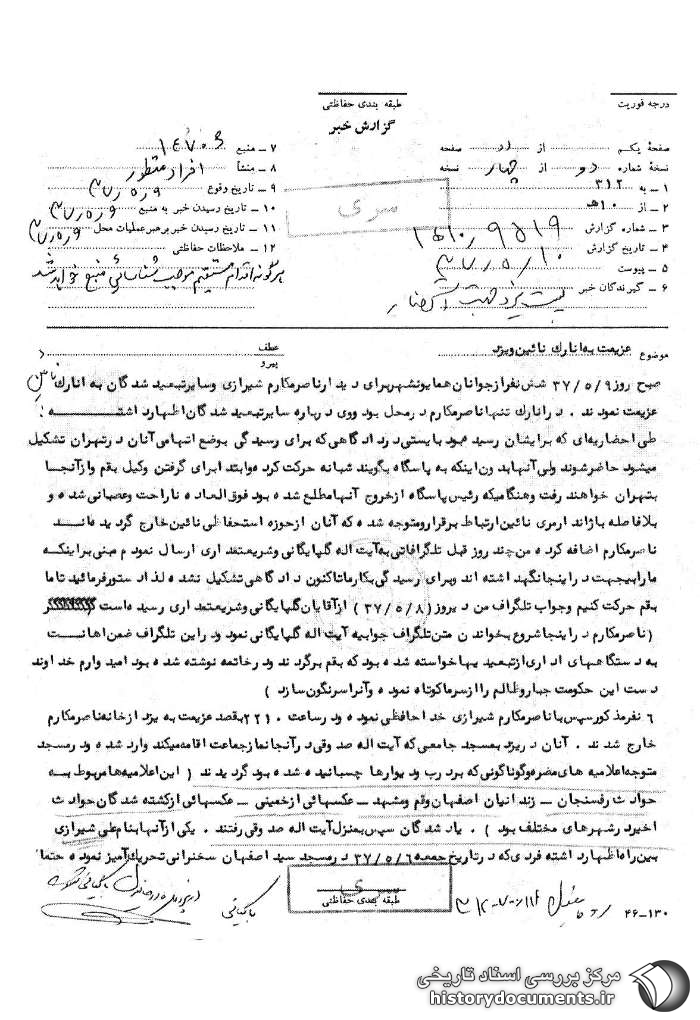 درجه فوریت
طبقه بندی حفاظتی
گزارش خبر
صفحه یکم از دو صفحه
نسخه شماره دو از چهار نسخه
۱ ــ به ۳۱۲
۲ ــ از ۱۰هـ
۳ ــ شماره گزارش ۱۵۱۰٫۹۵۱۹
۴ ــ تاریخ گزارش ۳۷٫۵٫۱۰
۵ ــ پیوست
۶ ــ گیرندگان خبر
۷ ــ منبع ۱۴۷۰۶
۸ ــ منشأ افراد منظور
۹ ــ تاریخ وقوع ۳۷٫۵٫۹
۱۰ ــ تاریخ رسیدن خبر به منبع ۳۷٫۵٫۹
۱۱ ــ تاریخ رسیدن خبر برهبر عملیات محل ۳۷٫۵٫۹
۱۲ ــ ملاحظات حفاظتی
هرگونه اقدام مستقیم موجب شناسائی منبع خواهد شد
سری
موضوع عزیمت به انارك نائین ویزد
عطف
پیرو
صبح روز ۳۷/۵/۹ شش نفر از جوانان همایونشهر برای دیدار ناصر مکارم شیرازی وسایر تبعید شدگان به انارك
عزیمت نمودند . در انارك تنها ناصر مکارم در محل بود ووی درباره سایر تبعید شدگان اظهار داشته :
طی احضاریه‌ای که برایشان رسیده بود بایستی در دادگاهی که برای رسیدگی بوضع اتهامی آنان در تهران تشکیل
میشود حاضر شوند ولی آنها بدون اینکه به پاسگاه بگویند شبانه حرکت کرده وابتدا برای گرفتن وکیل بقم واز آنجا
بتهران خواهند رفت وهنگامیکه رئیس پاسگاه از خروج آنها مطلع شده بود فوق‌العاده ناراحت وعصبانی شده و
بلافاصله باژاندارمری نائین ارتباط برقرار ومتوجه شده که آنان از حوزه استحفاظی نائین خارج گردیده‌اند
ناصر مکارم اضافه کرده من چند روز قبل تلگرافاتی به آیت اله گلپایگانی وشریعتمداری ارسال نمودم مبنی بر اینکه
ما را بیجهت در اینجا نگهداشته اند وبرای رسیدگی بکار ما تاکنون دادگاهی تشکیل نشده لذا دستور فرمائید تا ما
بقم حرکت کنیم وجواب تلگراف من دیروز (۳۷/۵/۸) از آقایان گلپایگانی وشریعتمداری رسیده است
(ناصر مکارم در اینجا شروع بخواندن متن تلگراف جوابیه آیت اله گلپایگانی نمود ودر این تلگراف ضمن اهانت
به دستگاههای اداری از تبعیدیها خواسته شده بود که بقم برگردند ودر خاتمه نوشته شده بود امیدوارم خداوند
دست این حکومت جبار وظالم را از سر ما کوتاه نموده وآنرا سرنگون سازد )
۶ نفر مذکور سپس با ناصر مکارم شیرازی خداحافظی نموده ودر ساعت ۲۲۱۰ بقصد عزیمت به یزد از خانه ناصر مکارم
خارج شدند . آنان در یزد بمسجد جامعی که آیت اله صدوقی در آنجا نماز جماعت اقامه میکند وارد شده ودر مسجد
متوجه اعلامیه های مضره وگوناگونی که بر درب ودیوارها چسبانیده شده بود گردیدند ( این اعلامیه‌ها مربوط به
حوادث رفسنجان ــ زندانیان اصفهان وقم ومشهد ــ عکسهائی از خمینی ــ عکسهائی از کشته شدگان حوادث
اخیر در شهرهای مختلف بود ) . یاد شدگان سپس بمنزل آیت اله صدوقی رفتند . یکی از آنها بنام علی شیرازی
بین راه اظهار داشته فردی که در تاریخ جمعه ۳۷/۵/۶ در مسجد سید اصفهان سخنرانی تحریك آمیز نموده حتما"
سری
طبقه بندی حفاظتی
بایگانی
۴۶ــ۱۳۰
مرکز بررسی اسناد تاریخی
historydocuments.ir